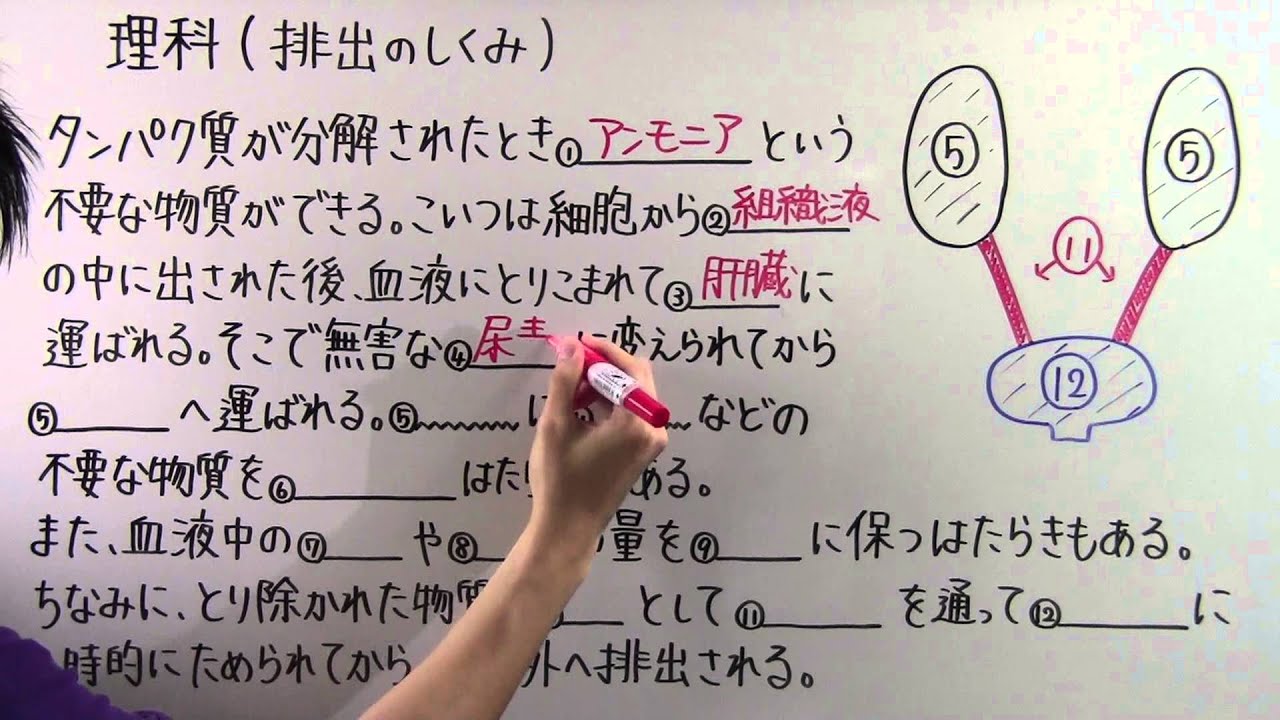 理科(排出のしくみ)
タンパク質が分解されたとき①アンモニアという
不要な物質ができる。こいつは細胞から②組織液
の中に出された後、血液にとりこまれて③肝臓に
運ばれる。そこで無害な④尿に変えられてから
⑤へ運ばれる。⑤などの
不要な物質を⑥はたある。
また、血液中の⑦や⑧量を⑨に保つはたらきもある。
ちなみに、とり除かれた物質として⑪を通って⑫に
時的にためられてから外へ排出される。
⑤
⑤
11
12